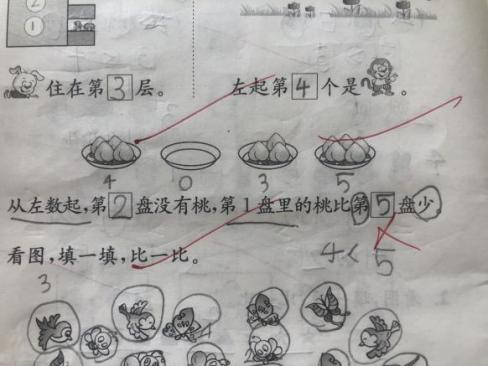 ②
①
住在第3层。 左起第4个是 。
4 0 3 5
从左数起,第2盘没有桃,第1盘里的桃比第5盘少
看图,填一填,比一比。 4< 5
3